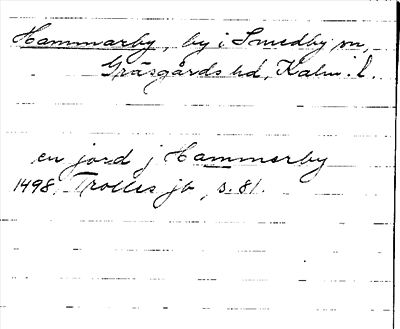 Hammarby, by i Smedby sn,
Gräsgårds hd, Kalm. l.
en jord j Hammerby
1498, Trolles jb, s. 81.